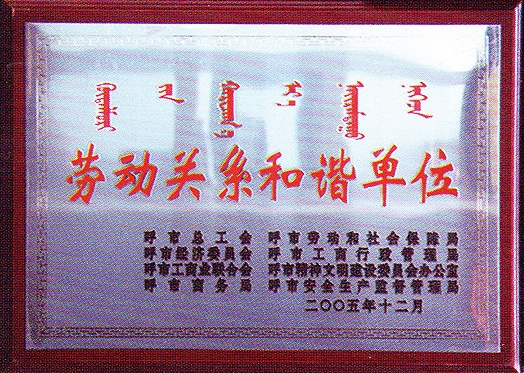 劳动关系和谐单位
呼市总工会 呼市劳动和社会保障局
呼市经济委员会 呼市工商行政管理局
呼市工商业联合会 呼市精神文明建设委员会办公室
呼市商务局 呼市安全生产监督管理局
二〇〇五年十二月